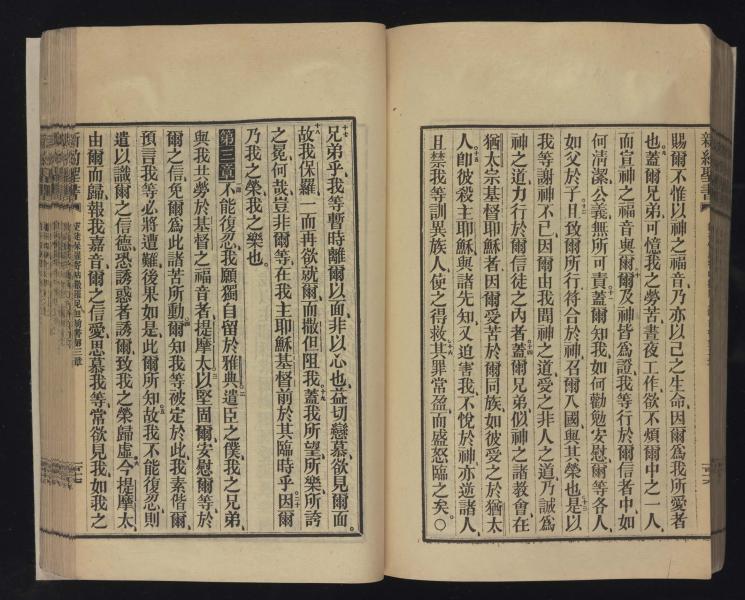 新約聖書
賜爾不惟以神之福音乃亦以己之生命因爾爲我所愛者
也蓋爾兄弟可憶我之勞苦晝夜工作欲不煩爾中之一人
而宣神之福音與爾爾及神皆爲證我等行於爾信者中如
何清潔公義無所可責蓋爾知我如何勸勉安慰爾等各人
如父於子且致爾所行符合於神召爾入國與其榮也是以
我等謝神不已因爾由我聞神之道受之非人之道乃誠爲
神之道力行於爾信徒之內者蓋爾兄弟似神之諸教會在
猶太宗基督耶穌者因爾受苦於爾同族如彼受之於猶太
人卽彼殺主耶穌與諸先知又迫害我不悅於神亦逆諸人
且禁我等訓異族人使之得救其罪常盈而盛怒臨之矣○
十七兄弟乎我等暫時離爾以面非以心也益切戀慕欲見爾面
十八故我保羅一而再欲就爾而撒但阻我蓋我所望所樂所誇
之冕何哉豈非爾等在我主耶穌基督前於其臨時乎因爾
乃我之榮我之樂也
第三章不能復忍我願獨自留於雅典遣臣之僕我之兄弟
與我共勞於基督之福音者提摩太以堅固爾安慰爾等於
爾之信免爾爲此諸苦所動爾知我等被定於此我素偕爾
預言我等必將遭難後果如是此爾所知故我不能復忍則
遣以識爾之信德恐誘惑者誘爾致我之榮歸虛今提摩太
由爾而歸報我嘉音爾之信愛思慕我等常欲見我如我之
新約聖書